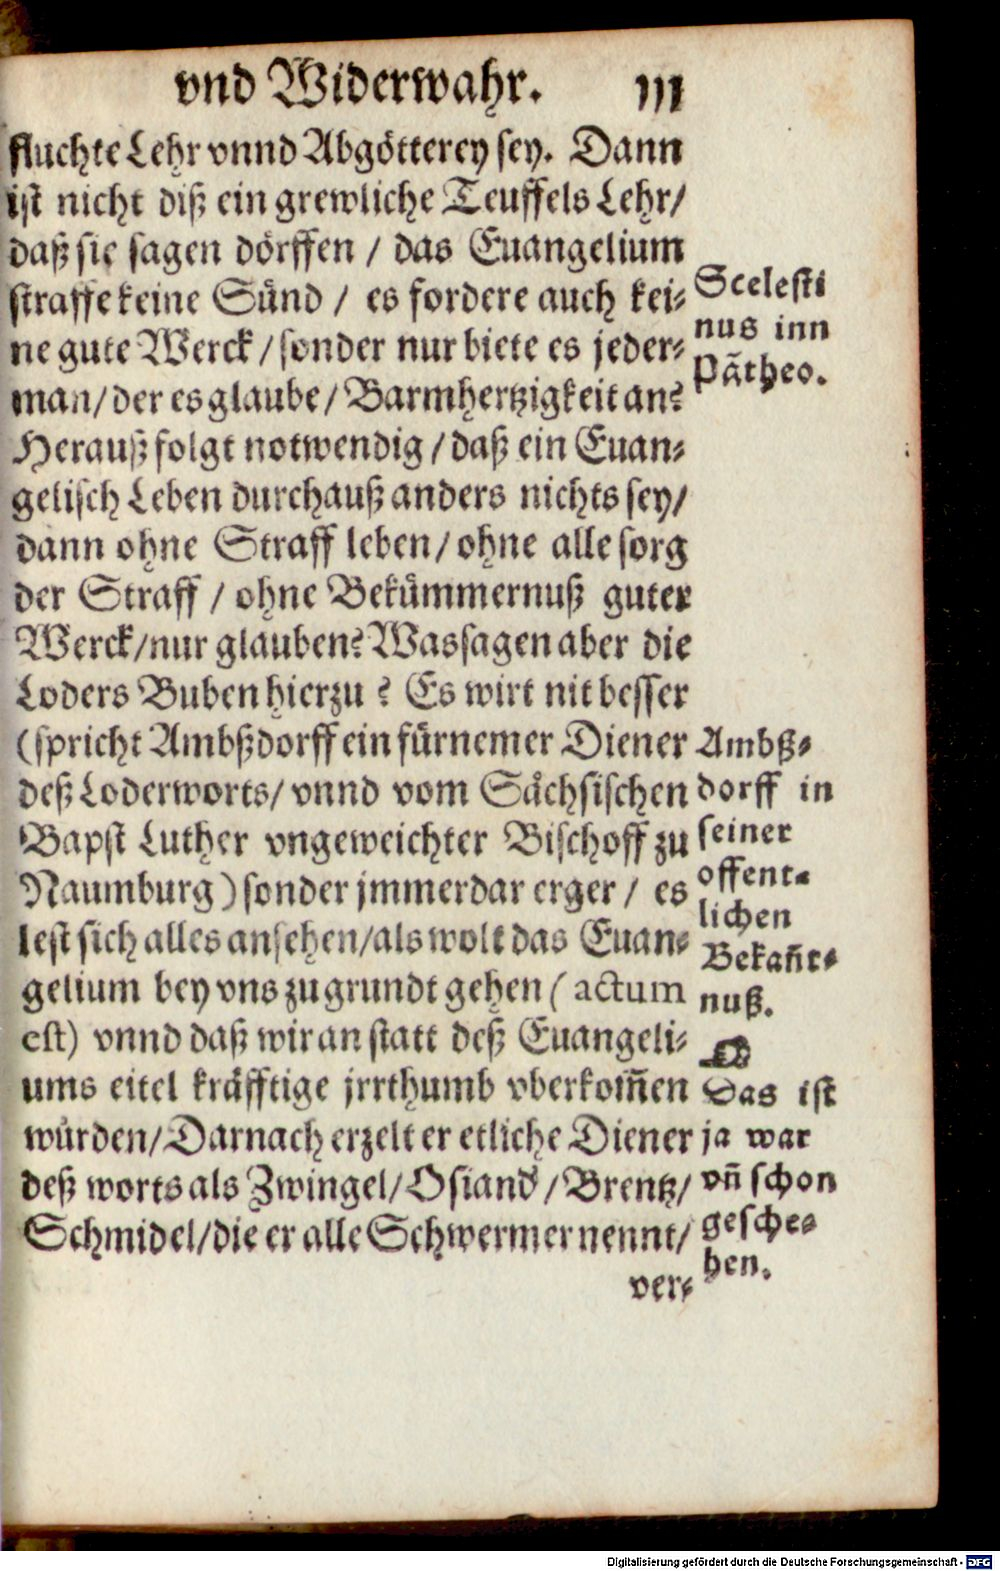 vnd Widerwahr. 111
fluchte Lehr vnnd Abgötterey sey. Dann
ist nicht diß ein grewliche Teuffels Lehr/
daß sie sagen dörffen / das Euangelium
straffe keine Sünd / es fordere auch kei-
ne gute Werck / sonder nur biete es jeder-
man / der es glaube / Barmhertzigkeit an?
Herauß folgt notwendig / daß ein Euan-
gelisch Leben durchauß anders nichts sey/
dann ohne Straff leben / ohne alle sorg
der Straff / ohne Bekümmernuß guter
Werck / nur glauben? Was sagen aber die
Loders Buben hierzu? Es wirt nit besser
(spricht Ambßdorff ein fürnemer Diener
deß Loderworts / vnnd vom Sächsischen
Bapst Luther vngeweichter Bischoff zu
Naumburg) sonder jmmerdar erger / es
lest sich alles ansehen / als wolt das Euan-
gelium bey vns zu grundt gehen (actum
est) vnnd daß wir an statt deß Euangeli-
ums eitel kräfftige jrrthumb vberkom̃en
würden / Darnach erzelt er etliche Diener
deß worts als Zwingel / Osiand' / Brentz/
Schmidel / die er alle Schwermer nennt/
ver-
Scelesti
nus inn
Pãtheo.
Ambß-
dorff in
seiner
offent-
lichen
Bekañt-
nuß.
☞
Das ist
ja war
vñ schon
gesche-
hen.
Digitalisierung gefördert durch die Deutsche Forschungsgemeinschaft - DFG